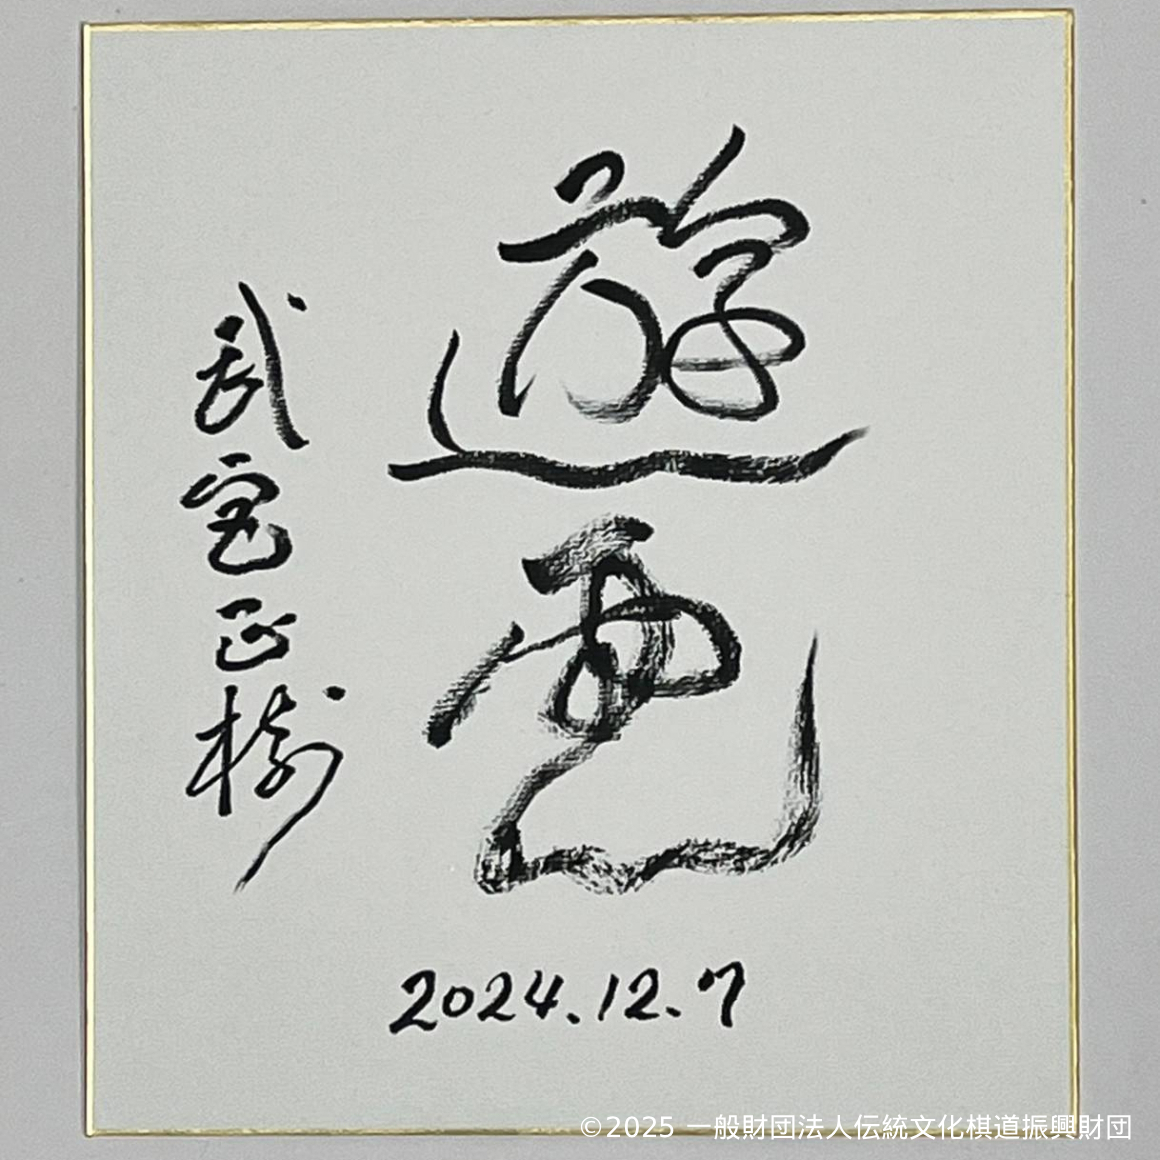 遊
武宮正樹
2024.12.7
©2025 一般財団法人伝統文化棋道振興財団